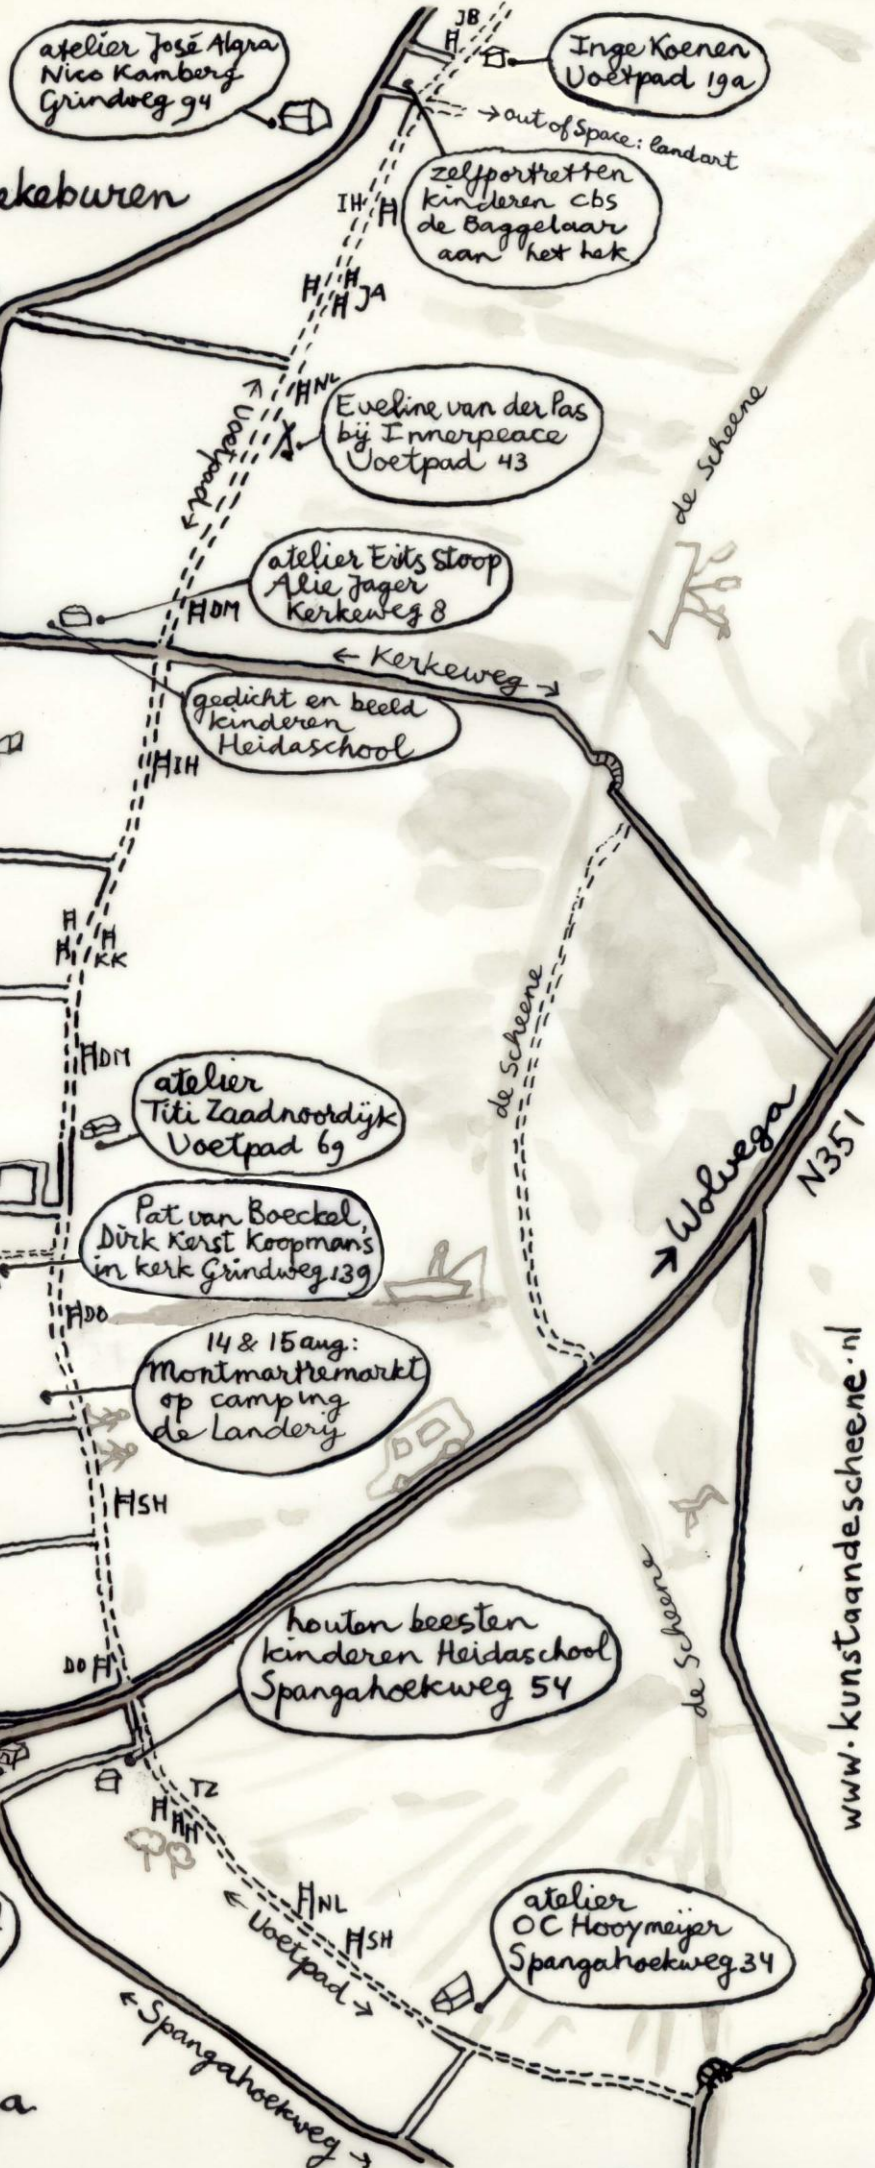 JB
atelier José Algra
Nico Kamberg
Grindweg 94
Inge Koenen
Voetpad 19a
→ out of Space: landart
zelfportretten
kinderen cbs
de Baggelaar
aan het hek
ekeburen
IH
JA
NL
← Voetpad →
Eveline van der Pas
bij Innerpeace
Voetpad 43
de Scheene
atelier Frits Stoop
Alie Jager
Kerkeweg 8
DM
← Kerkeweg →
gedicht en beeld
kinderen
Heidaschool
IH
KK
de Scheene
DM
atelier
Titi Zaadnoordijk
Voetpad 69
→ Wolvega
N351
Pat van Boeckel,
Dirk Kerst Koopmans
in kerk Grindweg 139
DO
14 & 15 aug:
Montmartremarkt
op camping
de Landerij
SH
www.kunstaandescheene.nl
de Scheene
houten beesten
kinderen Heidaschool
Spangahoekweg 54
DO
TZ
NL
SH
← Voetpad →
atelier
OC Hooymeijer
Spangahoekweg 34
← Spangahoekweg →
a